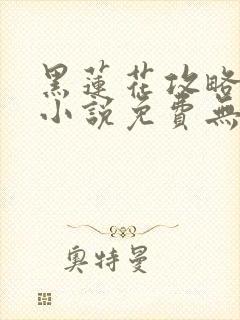 黑蓮花攻略
小說免費無
奧特曼